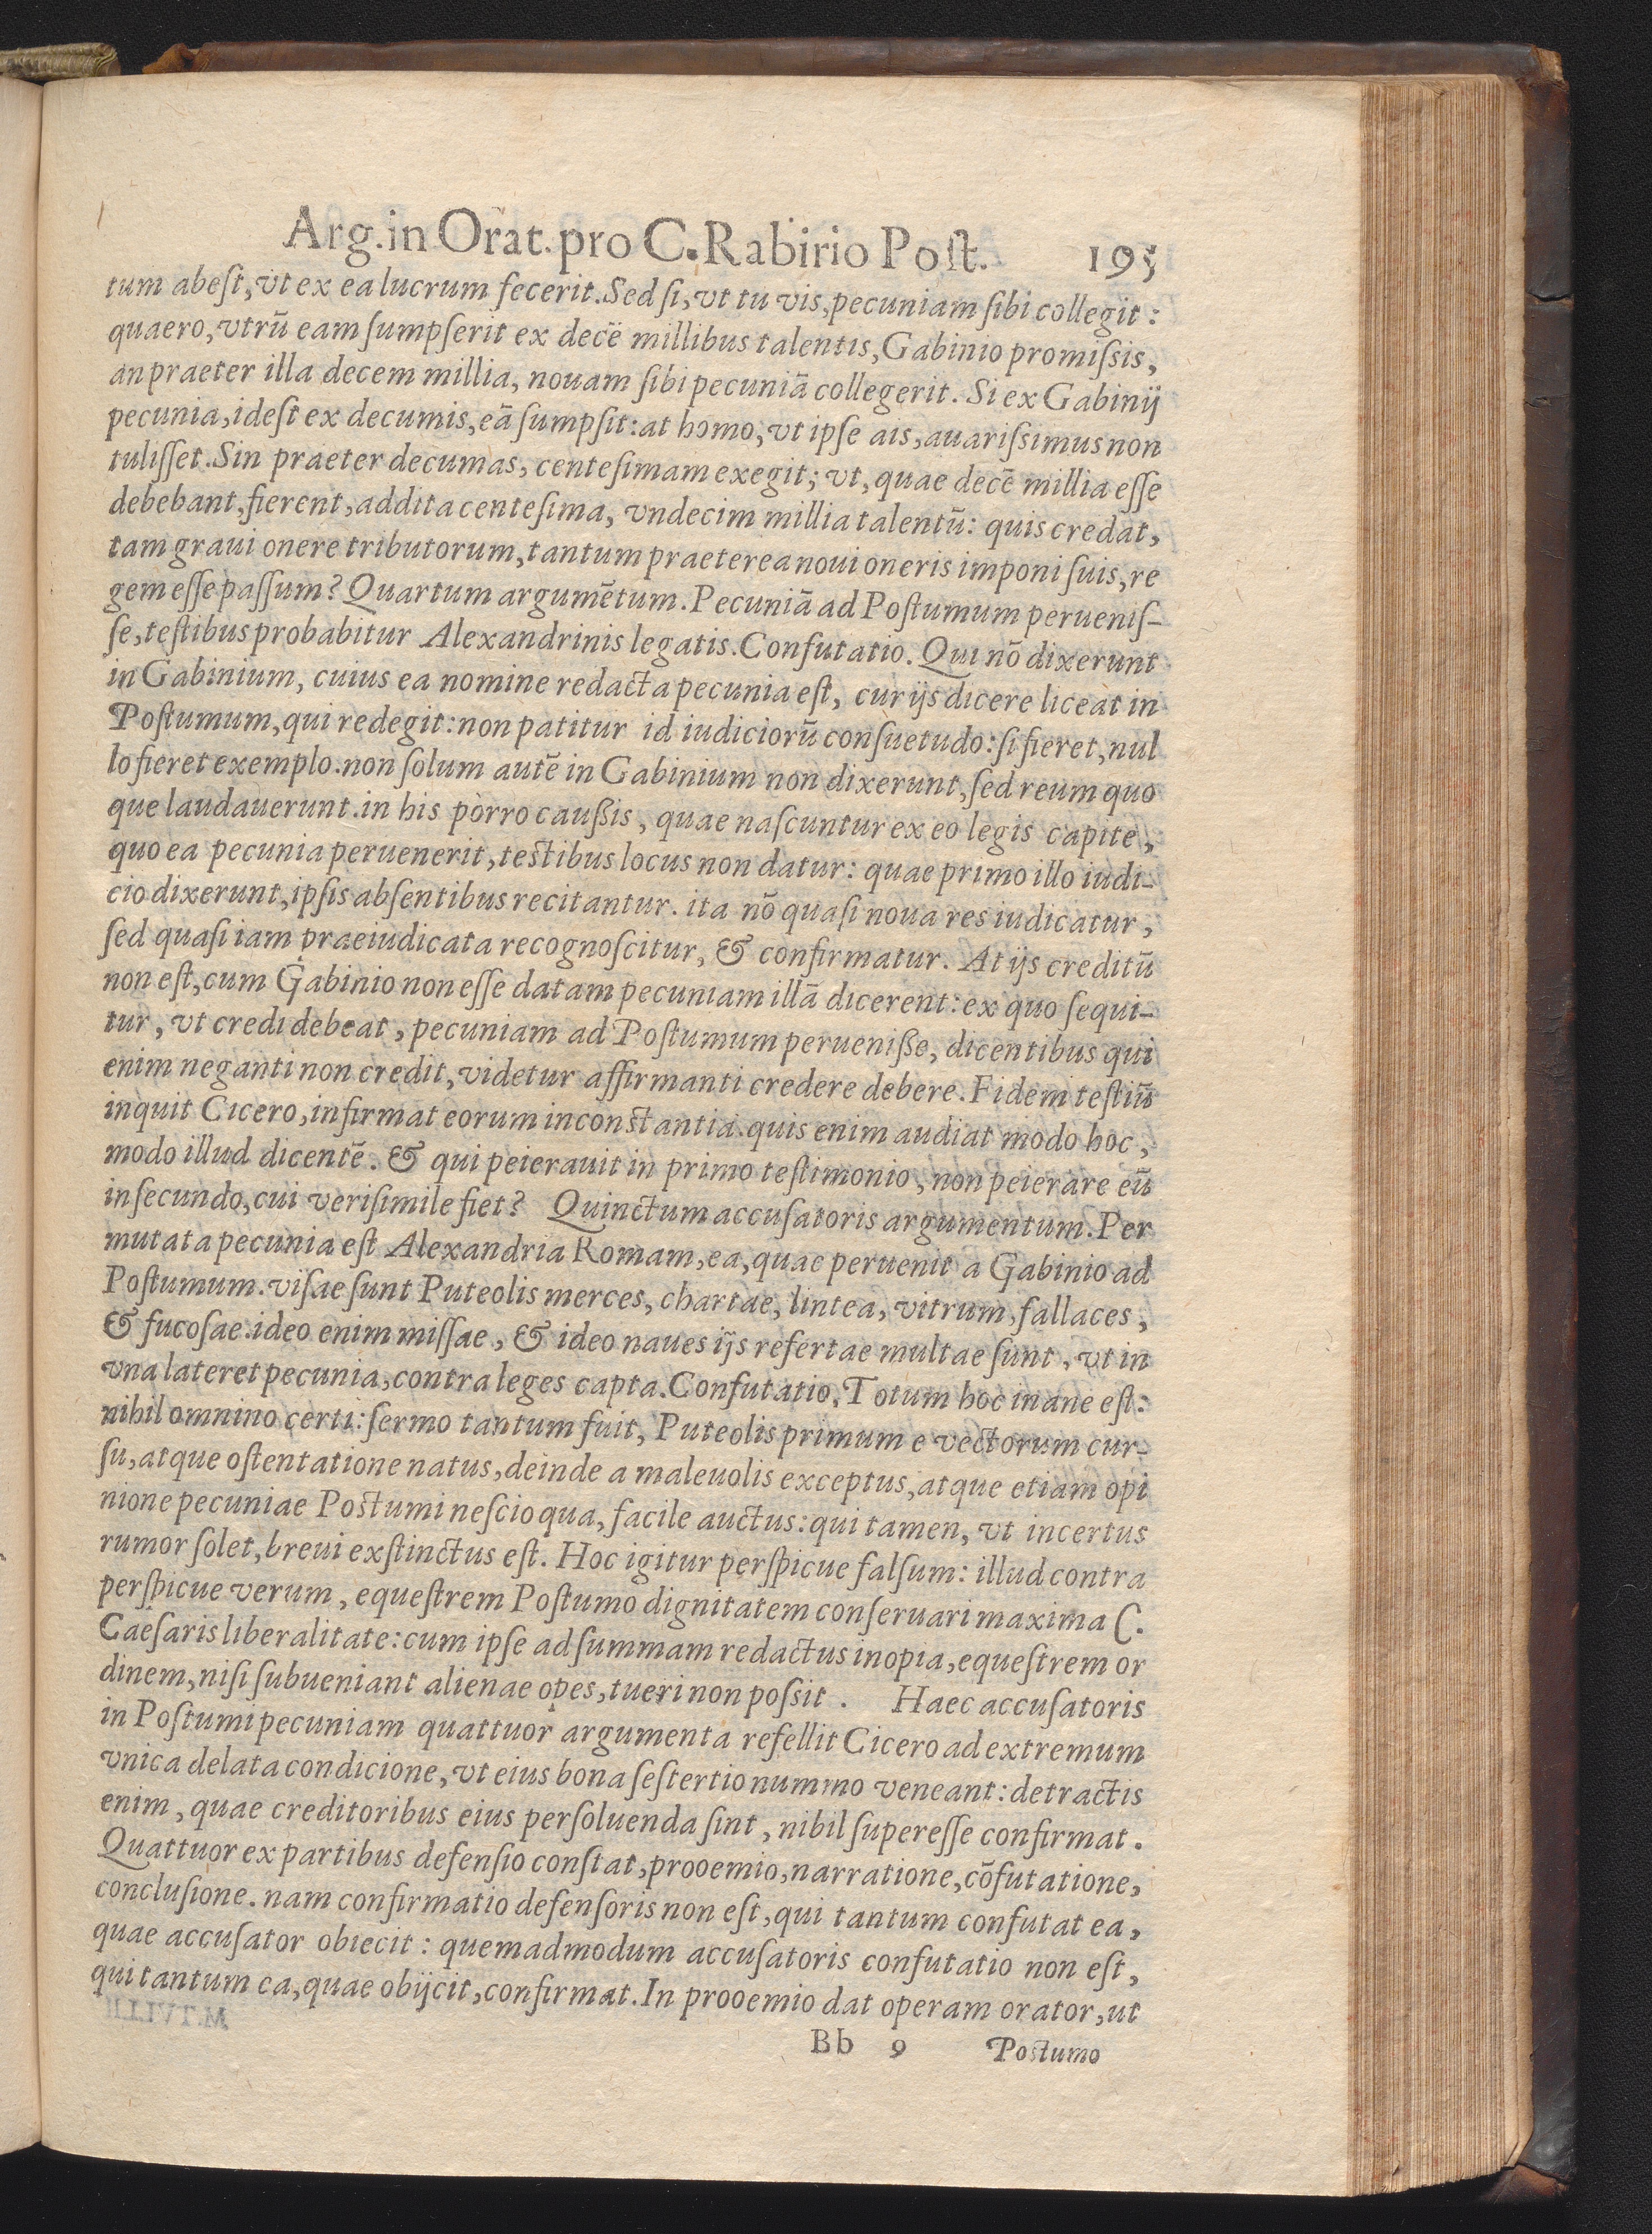 Arg. in Orat. pro C. Rabirio Post. 195
tum abest, vt ex ea lucrum fecerit. Sed si, vt tu vis, pecuniam sibi collegit:
quaero, vtrū eam sumpserit ex decē millibus talentis, Gabinio promissis,
an praeter illa decem millia, nouam sibi pecuniā collegerit. Si ex Gabinij
pecunia, idest ex decumis, eā sumpsit: at homo, vt ipse ais, auarissimus non
tulisset. Sin praeter decumas, centesimam exegit; vt, quae decē millia esse
debebant, fierent, addita centesima, vndecim millia talentū: quis credat,
tam graui onere tributorum, tantum praeterea noui oneris imponi suis, re
gem esse passum? Quartum argumētum. Pecuniā ad Postumum peruenis-
se, testibus probabitur Alexandrinis legatis. Confutatio. Qui nō dixerunt
in Gabinium, cuius ea nomine redacta pecunia est, cur ijs dicere liceat in
Postumum, qui redegit: non patitur id iudiciorū consuetudo: si fieret, nul
lo fieret exemplo. non solum autē in Gabinium non dixerunt, sed reum quo
que laudauerunt. in his porro caußis, quae nascuntur ex eo legis capite,
quo ea pecunia peruenerit, testibus locus non datur: quae primo illo iudi-
cio dixerunt, ipsis absentibus recitantur. ita nō quasi noua res iudicatur,
sed quasi iam praeiudicata recognoscitur, & confirmatur. At ijs creditū
non est, cum Gabinio non esse datam pecuniam illā dicerent: ex quo sequi-
tur, vt credi debeat, pecuniam ad Postumum perueniße, dicentibus qui
enim neganti non credit, videtur affirmanti credere debere. Fidem testiū
inquit Cicero, infirmat eorum inconstantia. quis enim audiat modo hoc,
modo illud dicentē. & qui peierauit in primo testimonio, non peierare eū
in secundo, cui verisimile fiet? Quinctum accusatoris argumentum. Per
mutata pecunia est Alexandria Romam, ea, quae peruenit a Gabinio ad
Postumum. visae sunt Puteolis merces, chartae, lintea, vitrum, fallaces,
& fucosae. ideo enim missae, & ideo naues ijs refertae multae sunt, vt in
vna lateret pecunia, contra leges capta. Confutatio. Totum hoc inane est:
nihil omnino certi: sermo tantum fuit, Puteolis primum e vectorum cur-
su, atque ostentatione natus, deinde a maleuolis exceptus, atque etiam opi
nione pecuniae Postumi nescio qua, facile auctus: qui tamen, vt incertus
rumor solet, breui exstinctus est. Hoc igitur perspicue falsum: illud contra
perspicue verum, equestrem Postumo dignitatem conseruari maxima C.
Caesaris liberalitate: cum ipse ad summam redactus inopia, equestrem or
dinem, nisi subueniant alienae opes, tueri non possit. Haec accusatoris
in Postumi pecuniam quattuor argumenta refellit Cicero ad extremum
vnica delata condicione, vt eius bona sestertio nummo veneant: detractis
enim, quae creditoribus eius persoluenda sint, nihil superesse confirmat.
Quattuor ex partibus defensio constat, prooemio, narratione, cōfutatione,
conclusione. nam confirmatio defensoris non est, qui tantum confutat ea,
quae accusator obiecit: quemadmodum accusatoris confutatio non est,
qui tantum ea, quae obijcit, confirmat. In prooemio dat operam orator, ut
Bb 9 Postumo